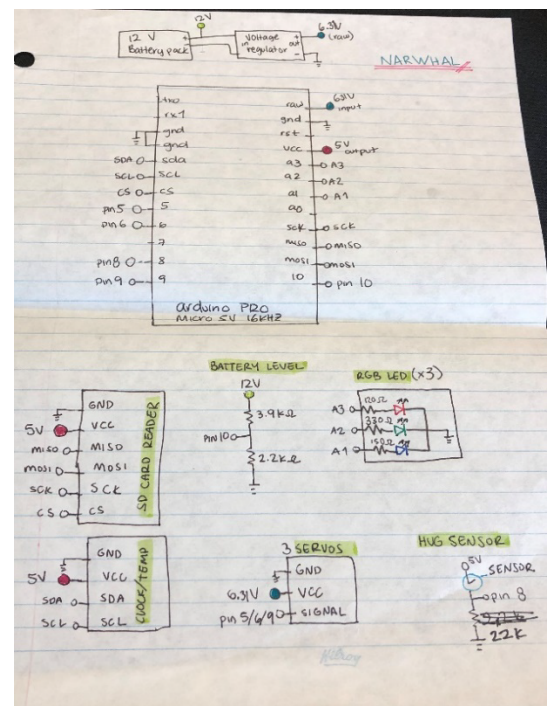 12V
12 V
Battery pack
+
-
in
voltage
regulator
out
+
-
6.31V
(raw)
NARWHAL
txo
rx1
gnd
gnd
SDA sda
SCL SCL
CS CS
pin5 5
pin6 6
7
pin8 8
pin9 9
raw 6.31V input
gnd
rst
vcc 5V output
a3 A3
a2 A2
a1 A1
a0
sck SCK
miso MISO
mosi mosi
10 pin 10
arduino PRO
Micro 5V 16KHZ
BATTERY LEVEL
12V
3.9kΩ
PIN10
2.2kΩ
RGB LED (x3)
A3 120Ω
A2 330Ω
A1 150Ω
GND
5V VCC
MISO MISO
MOSI MOSI
SCK SCK
CS CS
SD CARD READER
GND
5V VCC
SDA SDA
SCL SCL
CLOCK/TEMP
3 SERVOS
GND
6.31V VCC
pin 5/6/9 SIGNAL
HUG SENSOR
5V
SENSOR
pin 8
22K
Hilroy